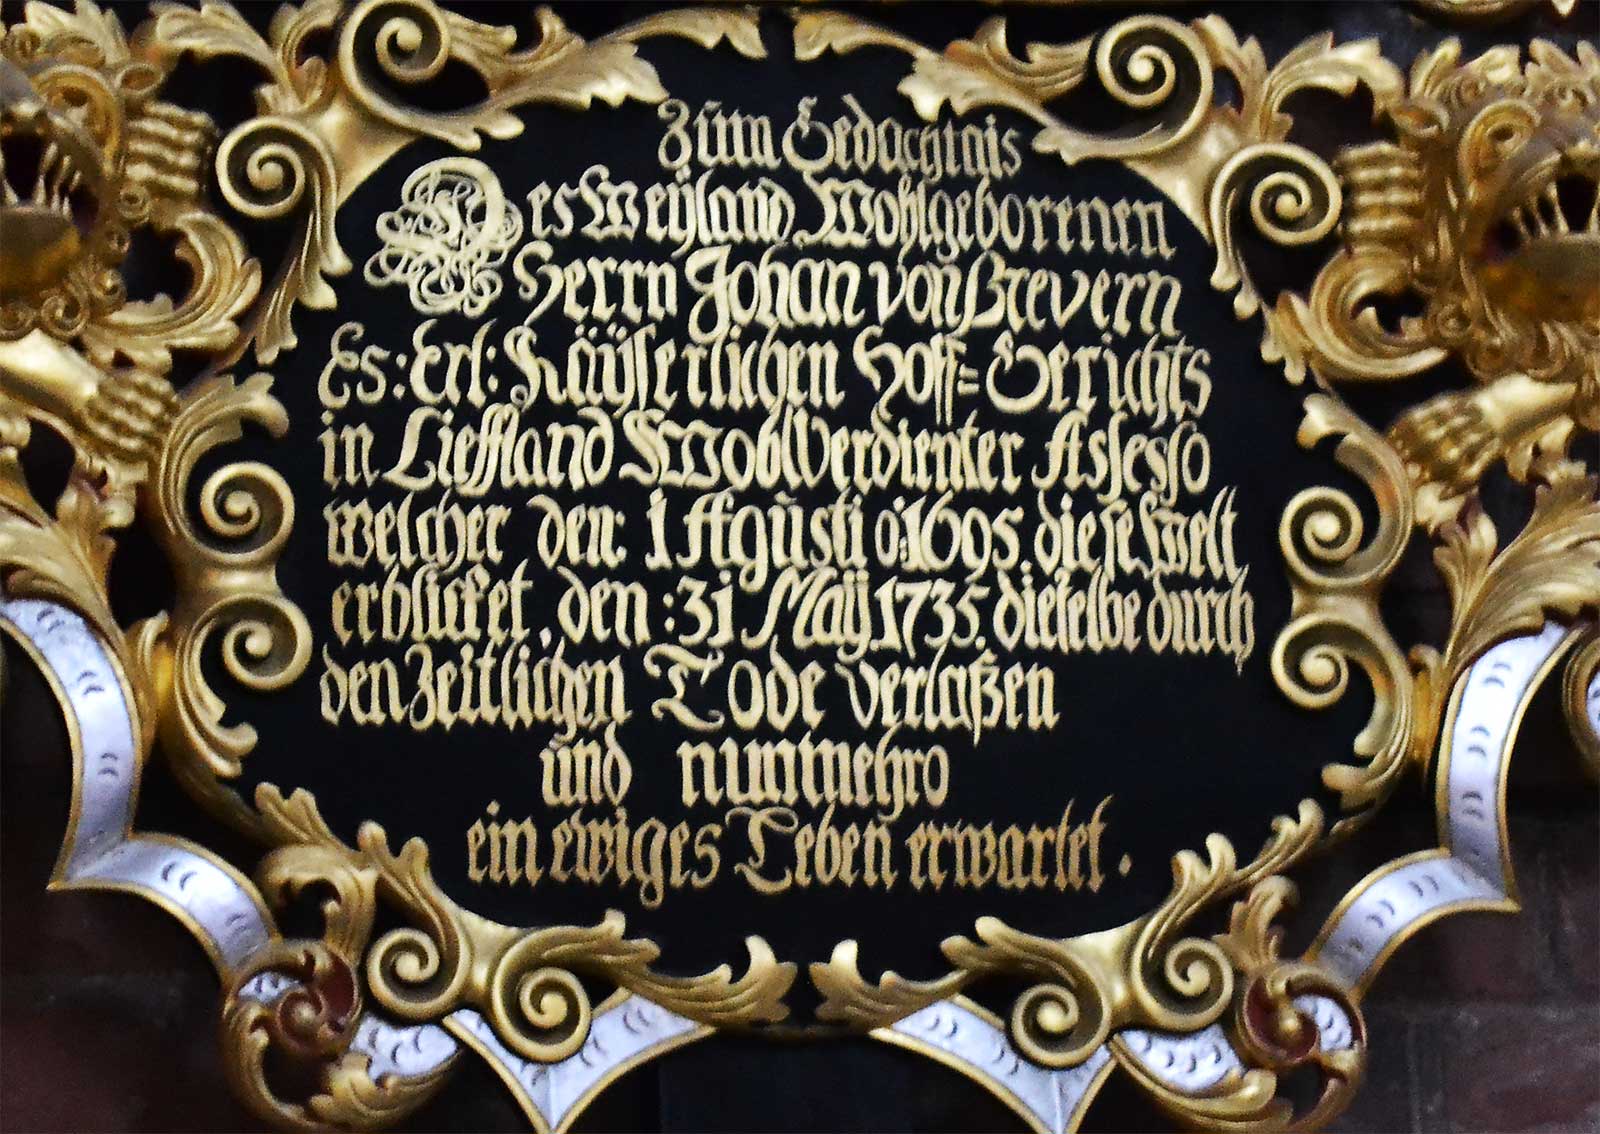 Zum Gedachtnis
Des Weÿland Wohlgeborenen
Herrn Johan von Brevern
Es: Erl: Käÿserlichen Hoff= Gerichts
in Lieffland WohlVerdienter Assesso
welcher den: 1 Agusti o:1695 diese Welt
erblicket, den :31 Maÿ.1735. dieselbe durch
den Zeitlichen Tode verlaßen
und nuntmehro
ein ewiges Leben erwartet.